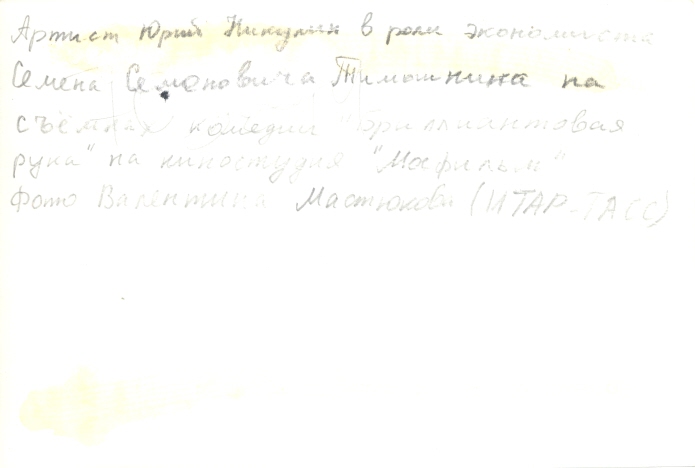 Артист Юрий Никулин в роли экономиста
Семена Семеновича Тимошнина на
съёмках комедии "Бриллиантовая
рука" на киностудия "Мофильм"
Фото Валентина Мастюкова (ИТАР-ТАСС)